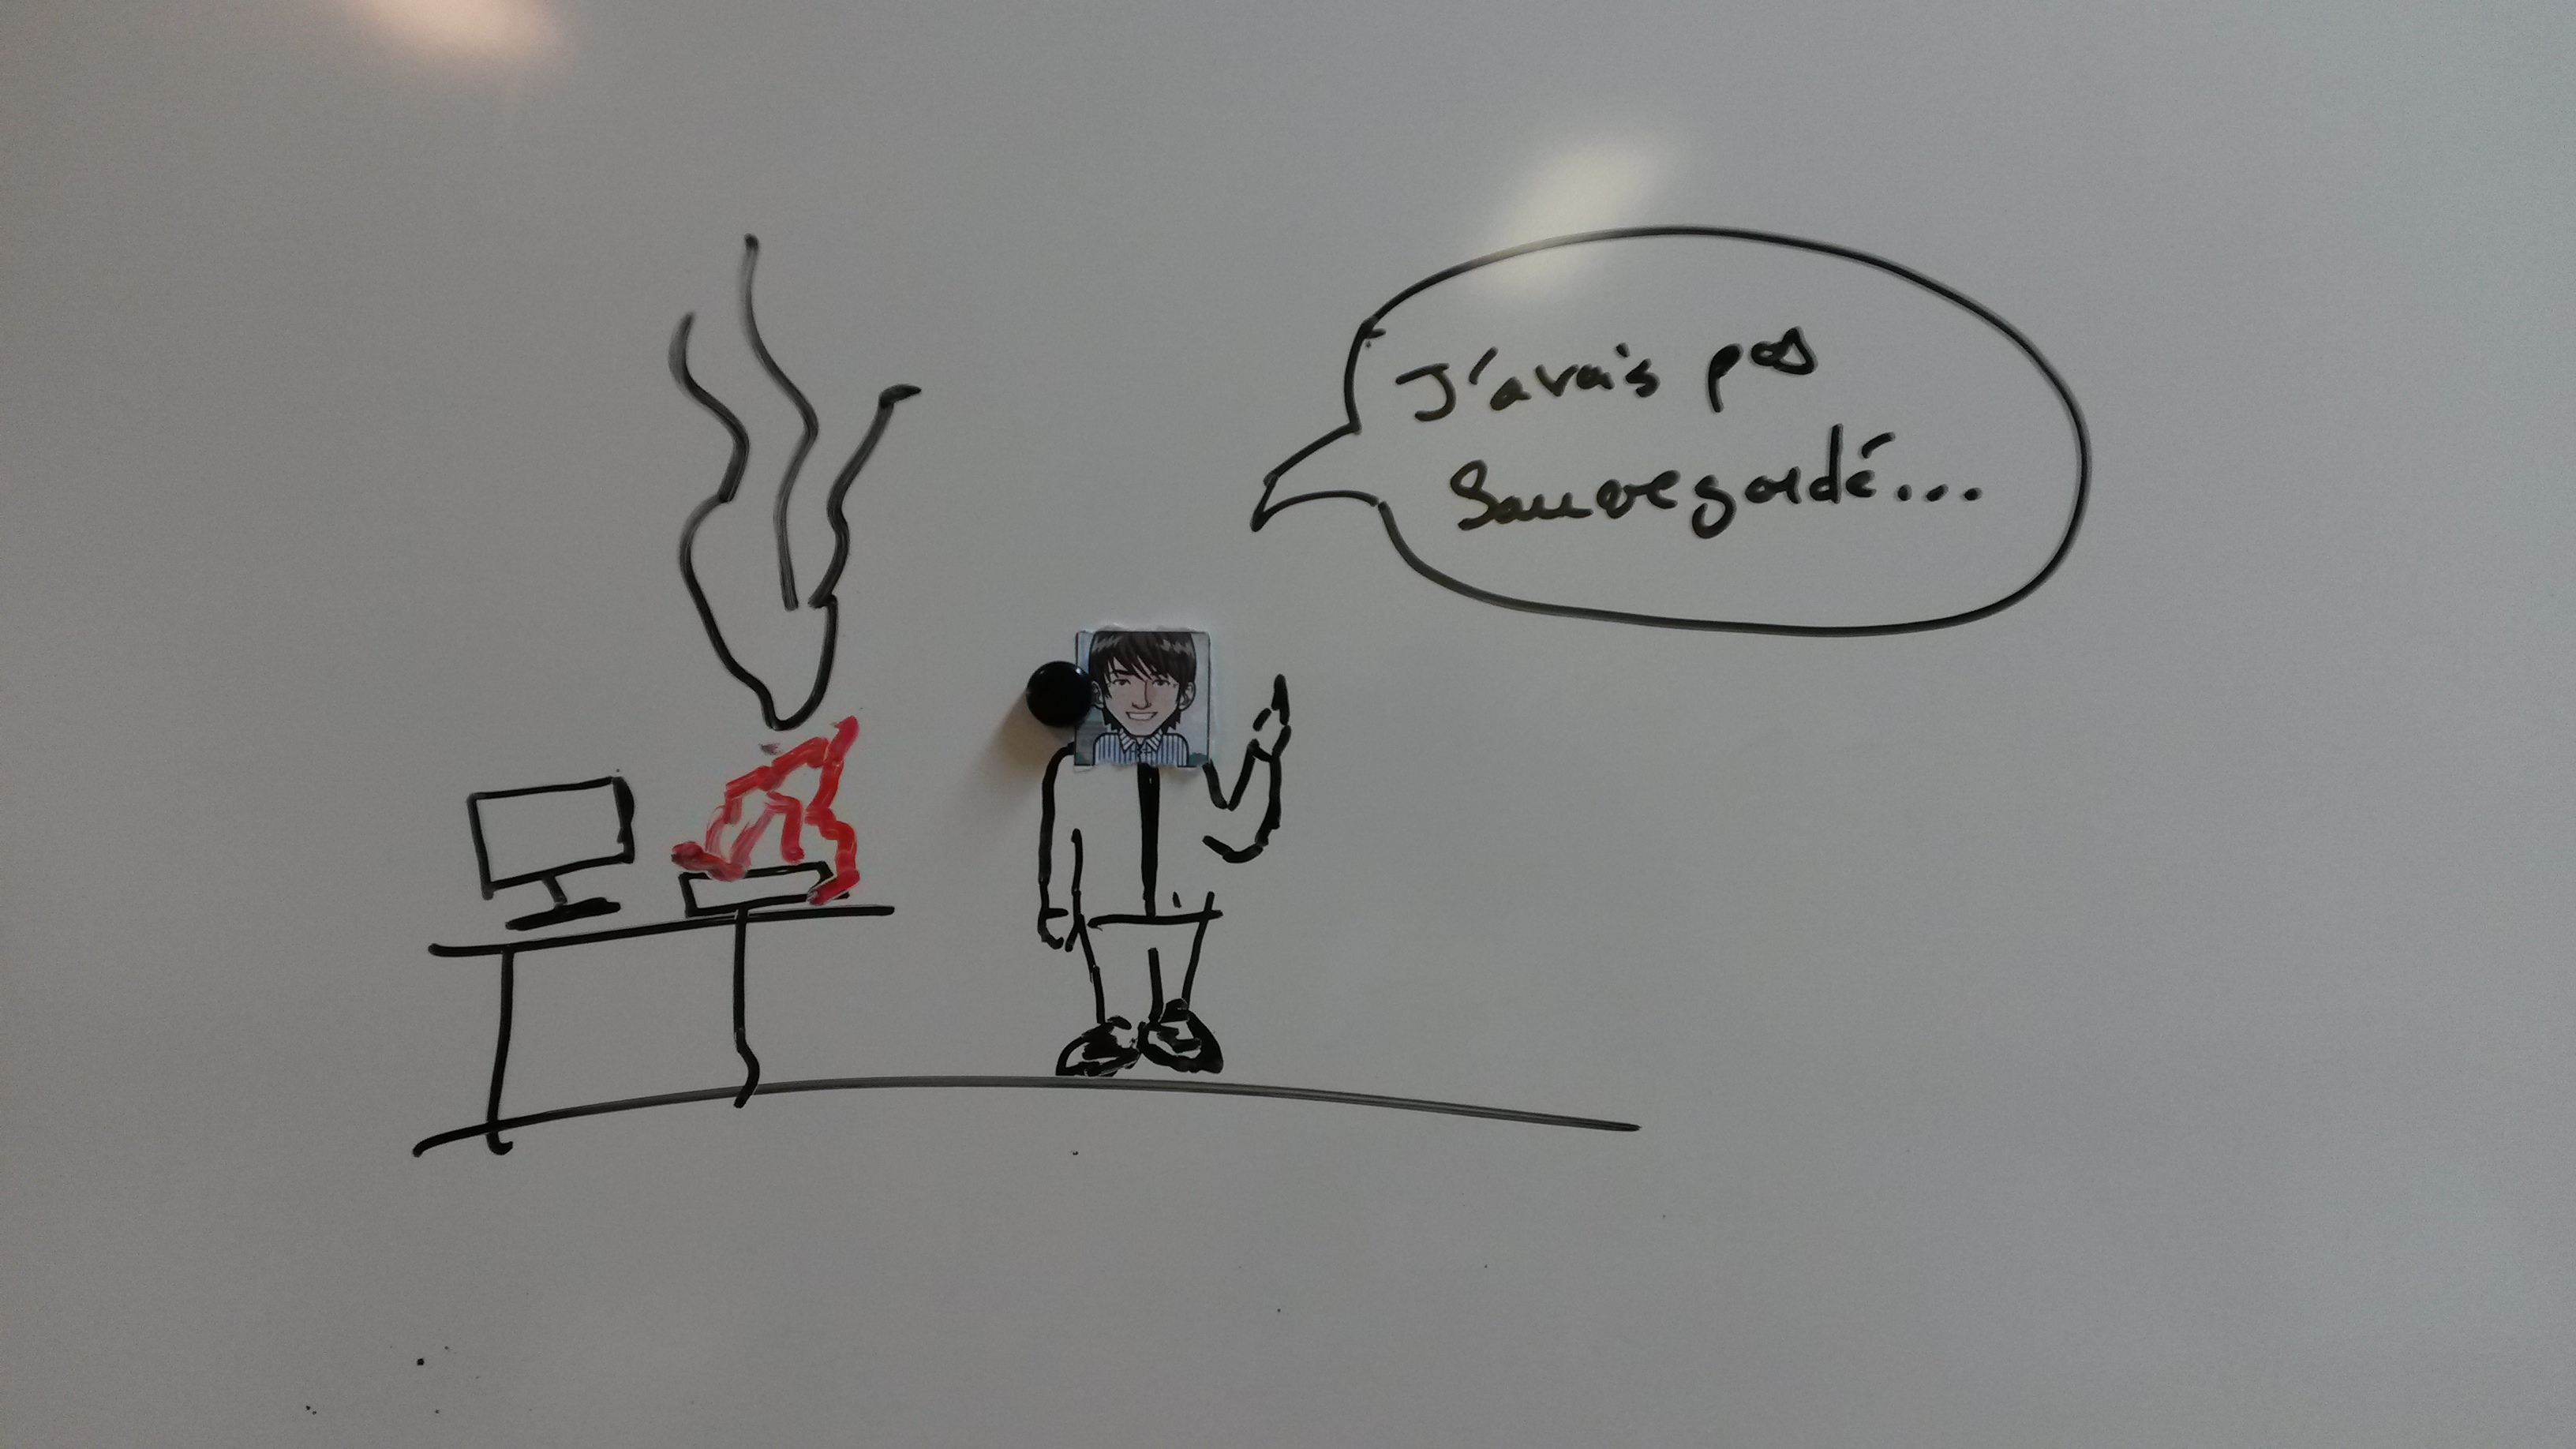 J'avais pas
Sauvegardé...